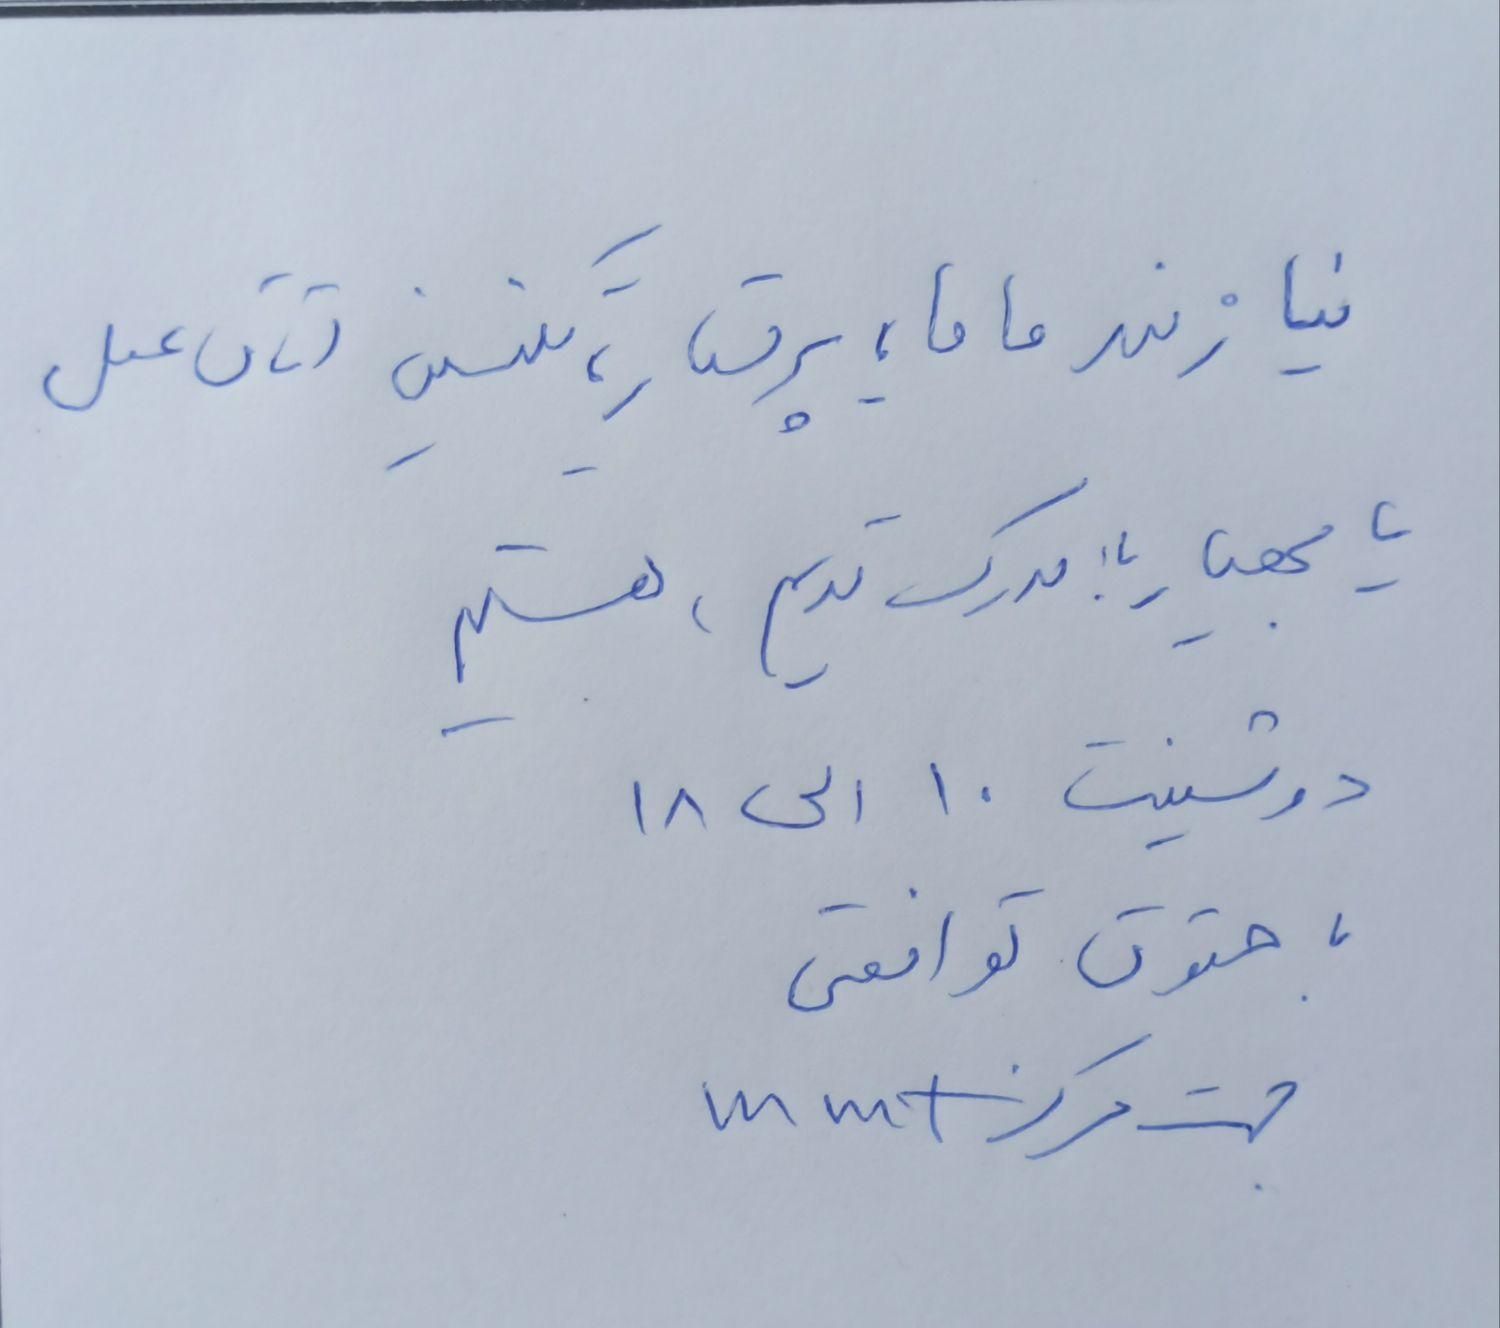 نیازمند ماما، پرستار، تکنسین اتاق عمل
یا بهیار با مدرک قدیم، هستیم
دو شیفت ۱۰ الی ۱۸
با حقوق توافقی
جهت مرکز mmt